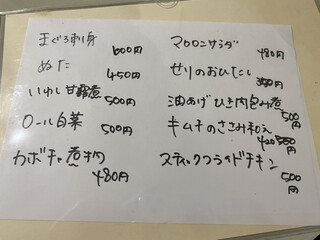 まぐろ刺身 600円
ぬた 450円
いわし甘露煮 500円
ロール白菜 500円
カボチャ煮物 480円
マカロニサラダ 480円
せりのおひたし 350円
油あげひき肉包み煮 500円
キムチのささみ和え 500円
スティックフライドチキン 500円